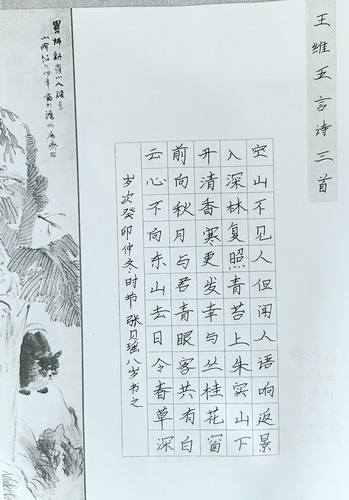 王维五言诗三首
空山不见人但闻人语响返景
入深林复照青苔上朱实山下
开清香寒更发幸与丛桂花窗
前向秋月与君青眼客共有白
云心不向东山去日令春草深
岁次癸卯仲冬时节张贝瑶八岁书之